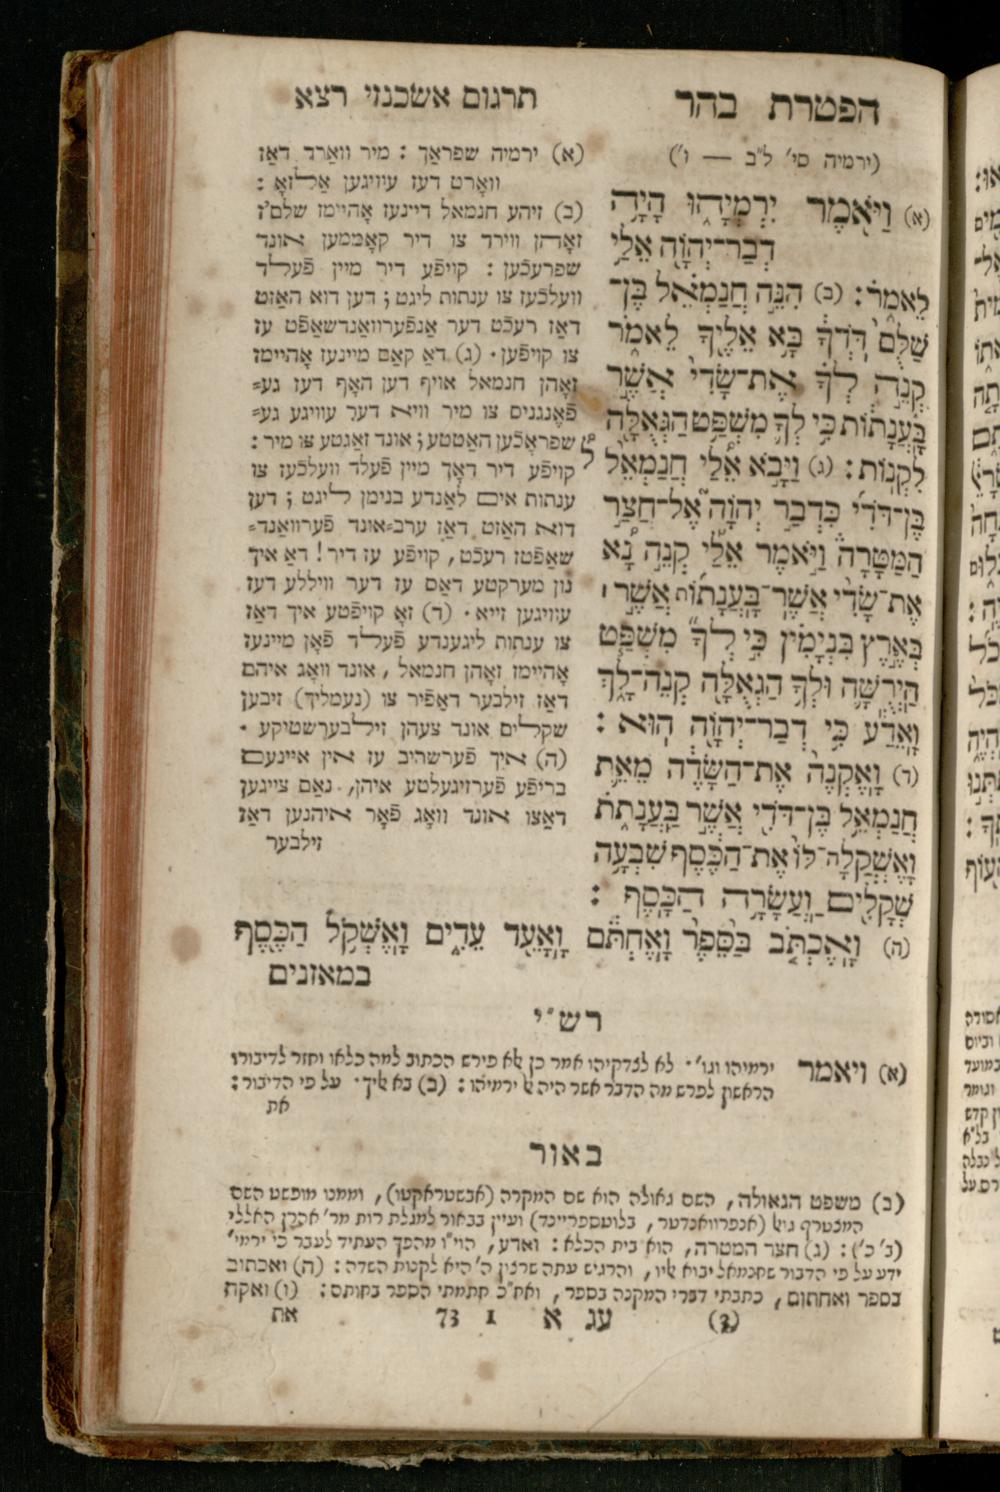 הפטרת בהר
תרגום אשכנזי רצא
(ירמיה סי' ל"ב — ו')
(א) וַיֹּאמֶר יִרְמְיָהוּ הָיָה
דְבַר־יְהוָֹה אֵלַי
לֵאמֹר: (ב) הִנֵּה חֲנַמְאֵל בֶּן־
שַׁלֻּם דֹּדְךָ בָּא אֵלֶיךָ לֵאמֹר
קְנֵה לְךָ אֶת־שָׂדִי אֲשֶׁר
בַּעֲנָתוֹת כִּי לְךָ מִשְׁפַּט הַגְּאֻלָּה
לִקְנוֹת: (ג) וַיָּבֹא אֵלַי חֲנַמְאֵל
בֶּן־דֹּדִי כִּדְבַר יְהוָֹה אֶל־חֲצַר
הַמַּטָּרָה וַיֹּאמֶר אֵלַי קְנֵה נָא
אֶת־שָׂדִי אֲשֶׁר־בַּעֲנָתוֹת אֲשֶׁר ׀
בְּאֶרֶץ בִּנְיָמִין כִּי לְךָ מִשְׁפַּט
הַיְרֻשָּׁה וּלְךָ הַגְאֻלָּה קְנֵה־לָךְ
וָאֵדַע כִּי דְבַר־יְהוָֹה הוּא:
(ד) וָאֶקְנֶה אֶת־הַשָּׂדֶה מֵאֵת
חֲנַמְאֵל בֶּן־דֹּדִי אֲשֶׁר בַּעֲנָתֹת
וָאֶשְׁקֲלָה־לּוֹ אֶת־הַכֶּסֶף שִׁבְעָה
שְׁקָלִים וַעֲשָׂרָה הַכָּסֶף:
(ה) וָאֶכְתֹּב בַּסֵּפֶר וָאֶחְתֹּם וָאָעֵד עֵדִים וָאֶשְׁקֹל הַכֶּסֶף
במאזנים
(א) ירמיה שפראַך: מיר וואַרד דאַז
וואָרט דעז עוויגען אַלזאָ:
(ב) זיהע חנמאל דיינעז אָהיימז שלם'ז
זאָהן ווירד צו דיר קאָממען אונד
שפרעכֿען: קויפֿע דיר מיין פֿעלד
וועלכֿעז צו ענתות ליגט; דען דוא האַזט
דאַז רעכֿט דער אַנפֿערוואַנדשאַפֿט עז
צו קויפֿען. (ג) דאַ קאַם מיינעז אָהיימז
זאָהן חנמאל אויף דען האָף דעז גע=
פֿאֶנגנים צו מיר וויא דער עוויגע גע=
שפראָכֿען האַטטע; אונד זאַגטע צו מיר:
קויפֿע דיר דאָך מיין פֿעלד וועלכֿעז צו
ענתות אים לאַנדע בנימן ליגט; דען
דוא האַזט דאַז ערב=אונד פֿערוואַנד=
שאַפֿטז רעכֿט, קויפֿע עז דיר! דאַ איך
נון מערקטע דאַס עז דער ווילליע דעז
עוויגען זייא. (ד) זאָ קויפֿטע איך דאַז
צו ענתות ליגענדע פֿעלד פֿאָן מיינעז
אָהיימז זאָהן חנמאל, אונד וואָג איהם
דאַז זילבער דאַפֿיר צו (נעמליך) זיבען
שקלים אונד צעהן זילבערשטיקע.
(ה) איך פֿערשריב עז אין איינעם
בריפֿע פֿערזיגעלטע איהן, נאַם צייגען
דאַצו אונד וואָג פֿאָר איהנען דאַז
זילבער
רש"י
(א) ויאמר ירמיהו וגו'. לא לצדקיהו אמר כן שלא פירש הכתוב למה כלאו וחזר לדיבורו
הראשון לפרש מה הדבר אשר היה אל ירמיהו: (ב) בא אליך. על פי הדיבור:
את
באור
(ב) משפט הגאולה, השם גאולה הוא שם המקרה (אבשטראקטו), וממנו מופשט השם
המצטרף גואל (אנפרוואנדטער, בלוטספריינד) ועיין בבאור למגלת רות מר' אהרן האללי
(ב' כ'): (ג) חצר המטרה, הוא בית הכלא: ואדע, הוי"ו מהפך העתיד לעבר כי ירמי'
ידע על פי הדבור שחנמאל יבוא אליו, והרגיש עתה שרצון ה' היא לקנות השדה: (ה) ואכתוב
בספר ואחתום, כתבתי דברי המקנה בספר, ואח"כ חתמתי הספר בחותם: (ו) ואקח
את
(3) עג א 1 73